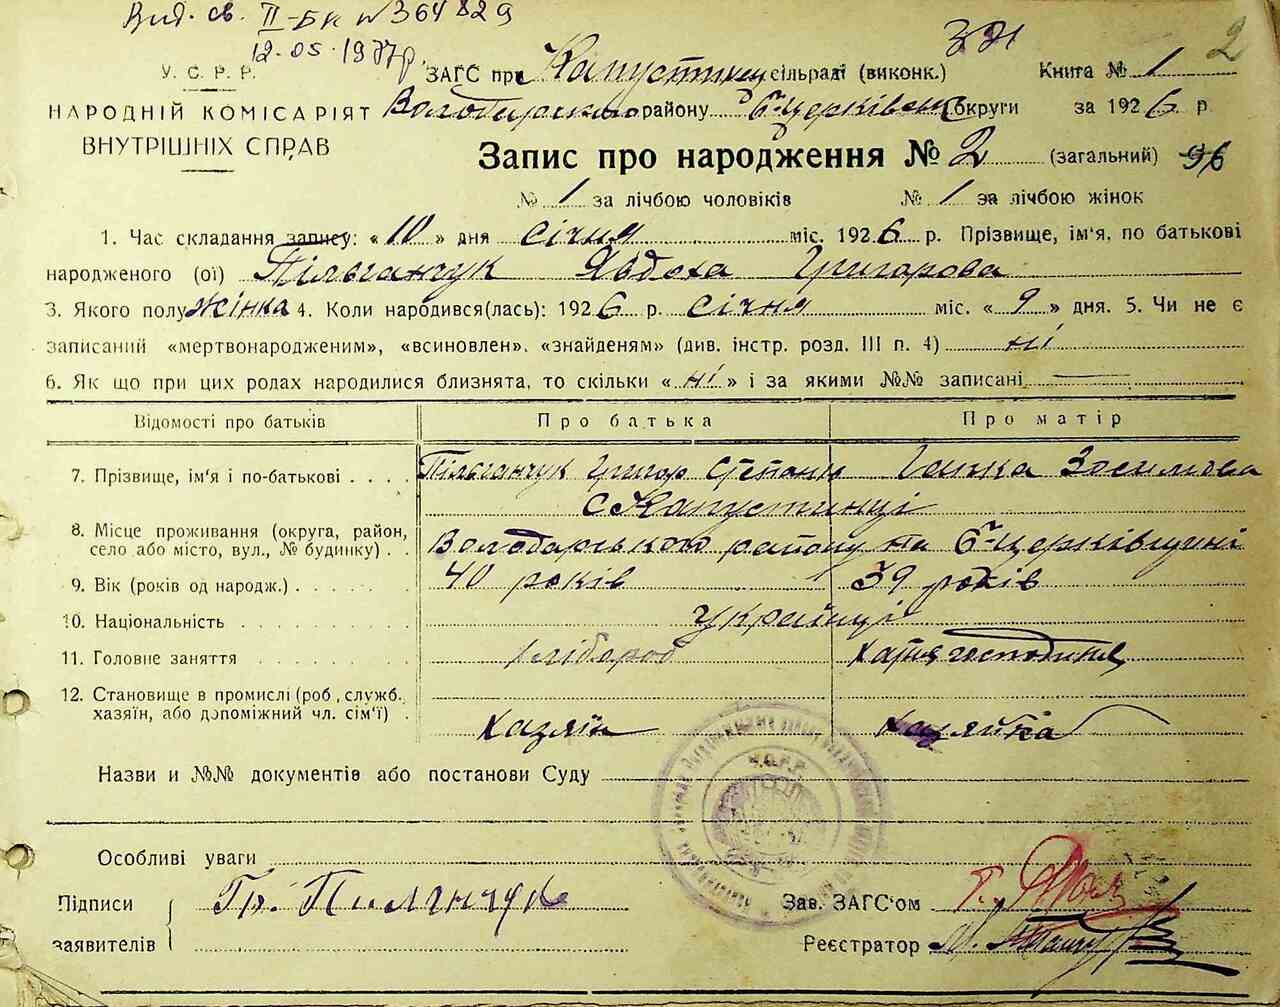 Вид. св. ІІ-БК №364829
12.05.1977р.
У. С. Р. Р.
НАРОДНІЙ КОМІСАРІЯТ
ВНУТРІШНІХ СПРАВ
ЗАГС при Капустинськ сільраді (виконк.) Книга № 1
Володарського району Б-Церківськ округи за 1926 р.
2
Запис про народження № 2 (загальний) 96
№ 1 за лічбою чоловіків № 1 за лічбою жінок
1. Час складання запису: «10» дня січня міс. 1926 р. Прізвище, ім'я, по батькові
народженого (ої) Пільганчук Явдоха Григорова
3. Якого полу жінка 4. Коли народився(лась): 1926 р. січня міс. «9» дня. 5. Чи не є
записаний «мертвонародженим», «всиновлен», «знайденям» (див. інстр. розд. III п. 4) ні
6. Як що при цих родах народилися близнята, то скільки «ні» і за якими №№ записані —
Відомості про батьків Про батька Про матір
7. Прізвище, ім'я і по-батькові Пільганчук Григор Степанів Ганка Зосимова
с Капустинці
8. Місце проживання (округа, район,
село або місто, вул., № будинку) Володарського району на Б-Церківщині
9. Вік (років од народж.) 40 років 39 років
10. Національність Українці
11. Головне заняття хлібороб хатня господиня
12. Становище в промислі (роб., служб.
хазяїн, або допоміжний чл. сім'ї) хазяїн хазяйка
Назви и №№ документів або постанови Суду
У.С.Р.Р.
Особливі уваги
Підписи Гр. Пилганчук Зав. ЗАГС'ом
заявителів Реєстратор